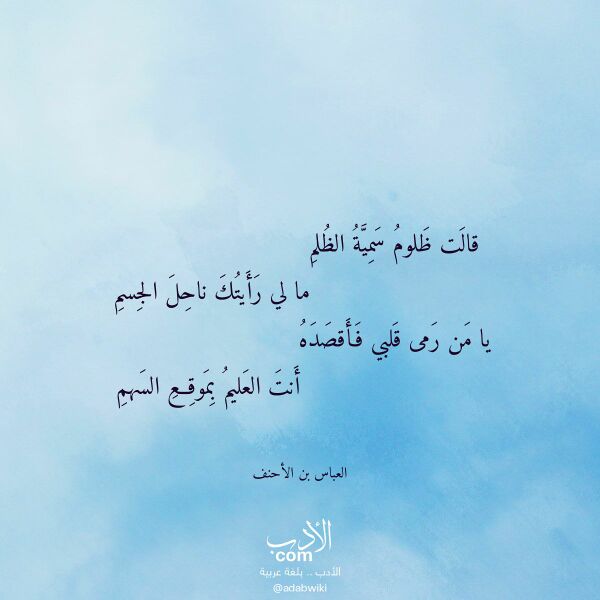 قالَت ظَلومُ سَمِيَّةُ الظُلمِ
ما لي رَأَيتُكَ ناحِلَ الجِسمِ
يا مَن رَمى قَلبي فَأَقصَدَهُ
أَنتَ العَليمُ بِمَوقِعِ السَهمِ
العباس بن الأحنف
الأدب
com
الأدب .. بلغة عربية
@adabwiki